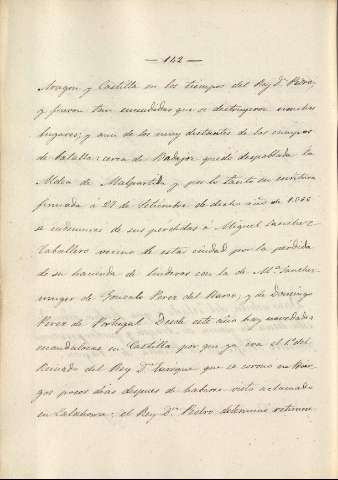 — 142 —
Aragon y Castilla en los tiempos del Rey Dn. Pedro,
y fueron tan encendidas que se destruyeron muchos
lugares; y aun de los muy distantes de los campos
de batalla: cerca de Badajoz quedó despoblada la
Aldea de Malpartida y por lo tanto en escritura
firmada á 27 de Setiembre de dicho año de 1366
se de sus pérdidas á Miguel Sanchez
Caballero vecino de esta ciudad por la pérdida
de su hacienda de linderos con la de Ma. Sanchez
muger de Gonzalo Perez del Barro; y de Domingo
Perez de Portugal. Desde este año hay novedades
escandalosas en Castilla por que ya era el 1º del
Reinado del Rey Dn. Enrique que se corono en Bur-
gos pocos dias despues de haberse visto aclamado
en Calahorra: el Rey Dn. Pedro determinó retirarse